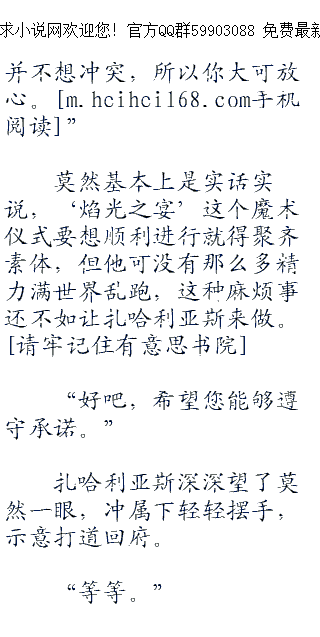 求小说网欢迎您！官方QQ群59903088 免费最新
并不想冲突，所以你大可放
心。[m.hcihci168.com手机
阅读]”
莫然基本上是实话实
说，‘焰光之宴’这个魔术
仪式要想顺利进行就得聚齐
素体，但他可没有那么多精
力满世界乱跑，这种麻烦事
还不如让扎哈利亚斯来做。
[请牢记住有意思书院]
“好吧，希望您能够遵
守承诺。”
扎哈利亚斯深深望了莫
然一眼，冲属下轻轻摆手，
示意打道回府。
“等等。”